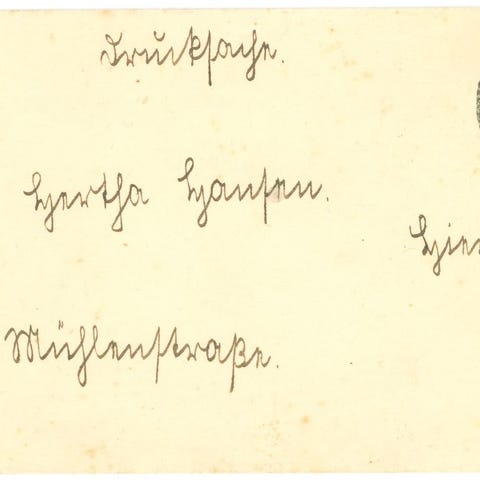 Drucksache.
Hertha Hansen.
Hier
Mühlenstraße.